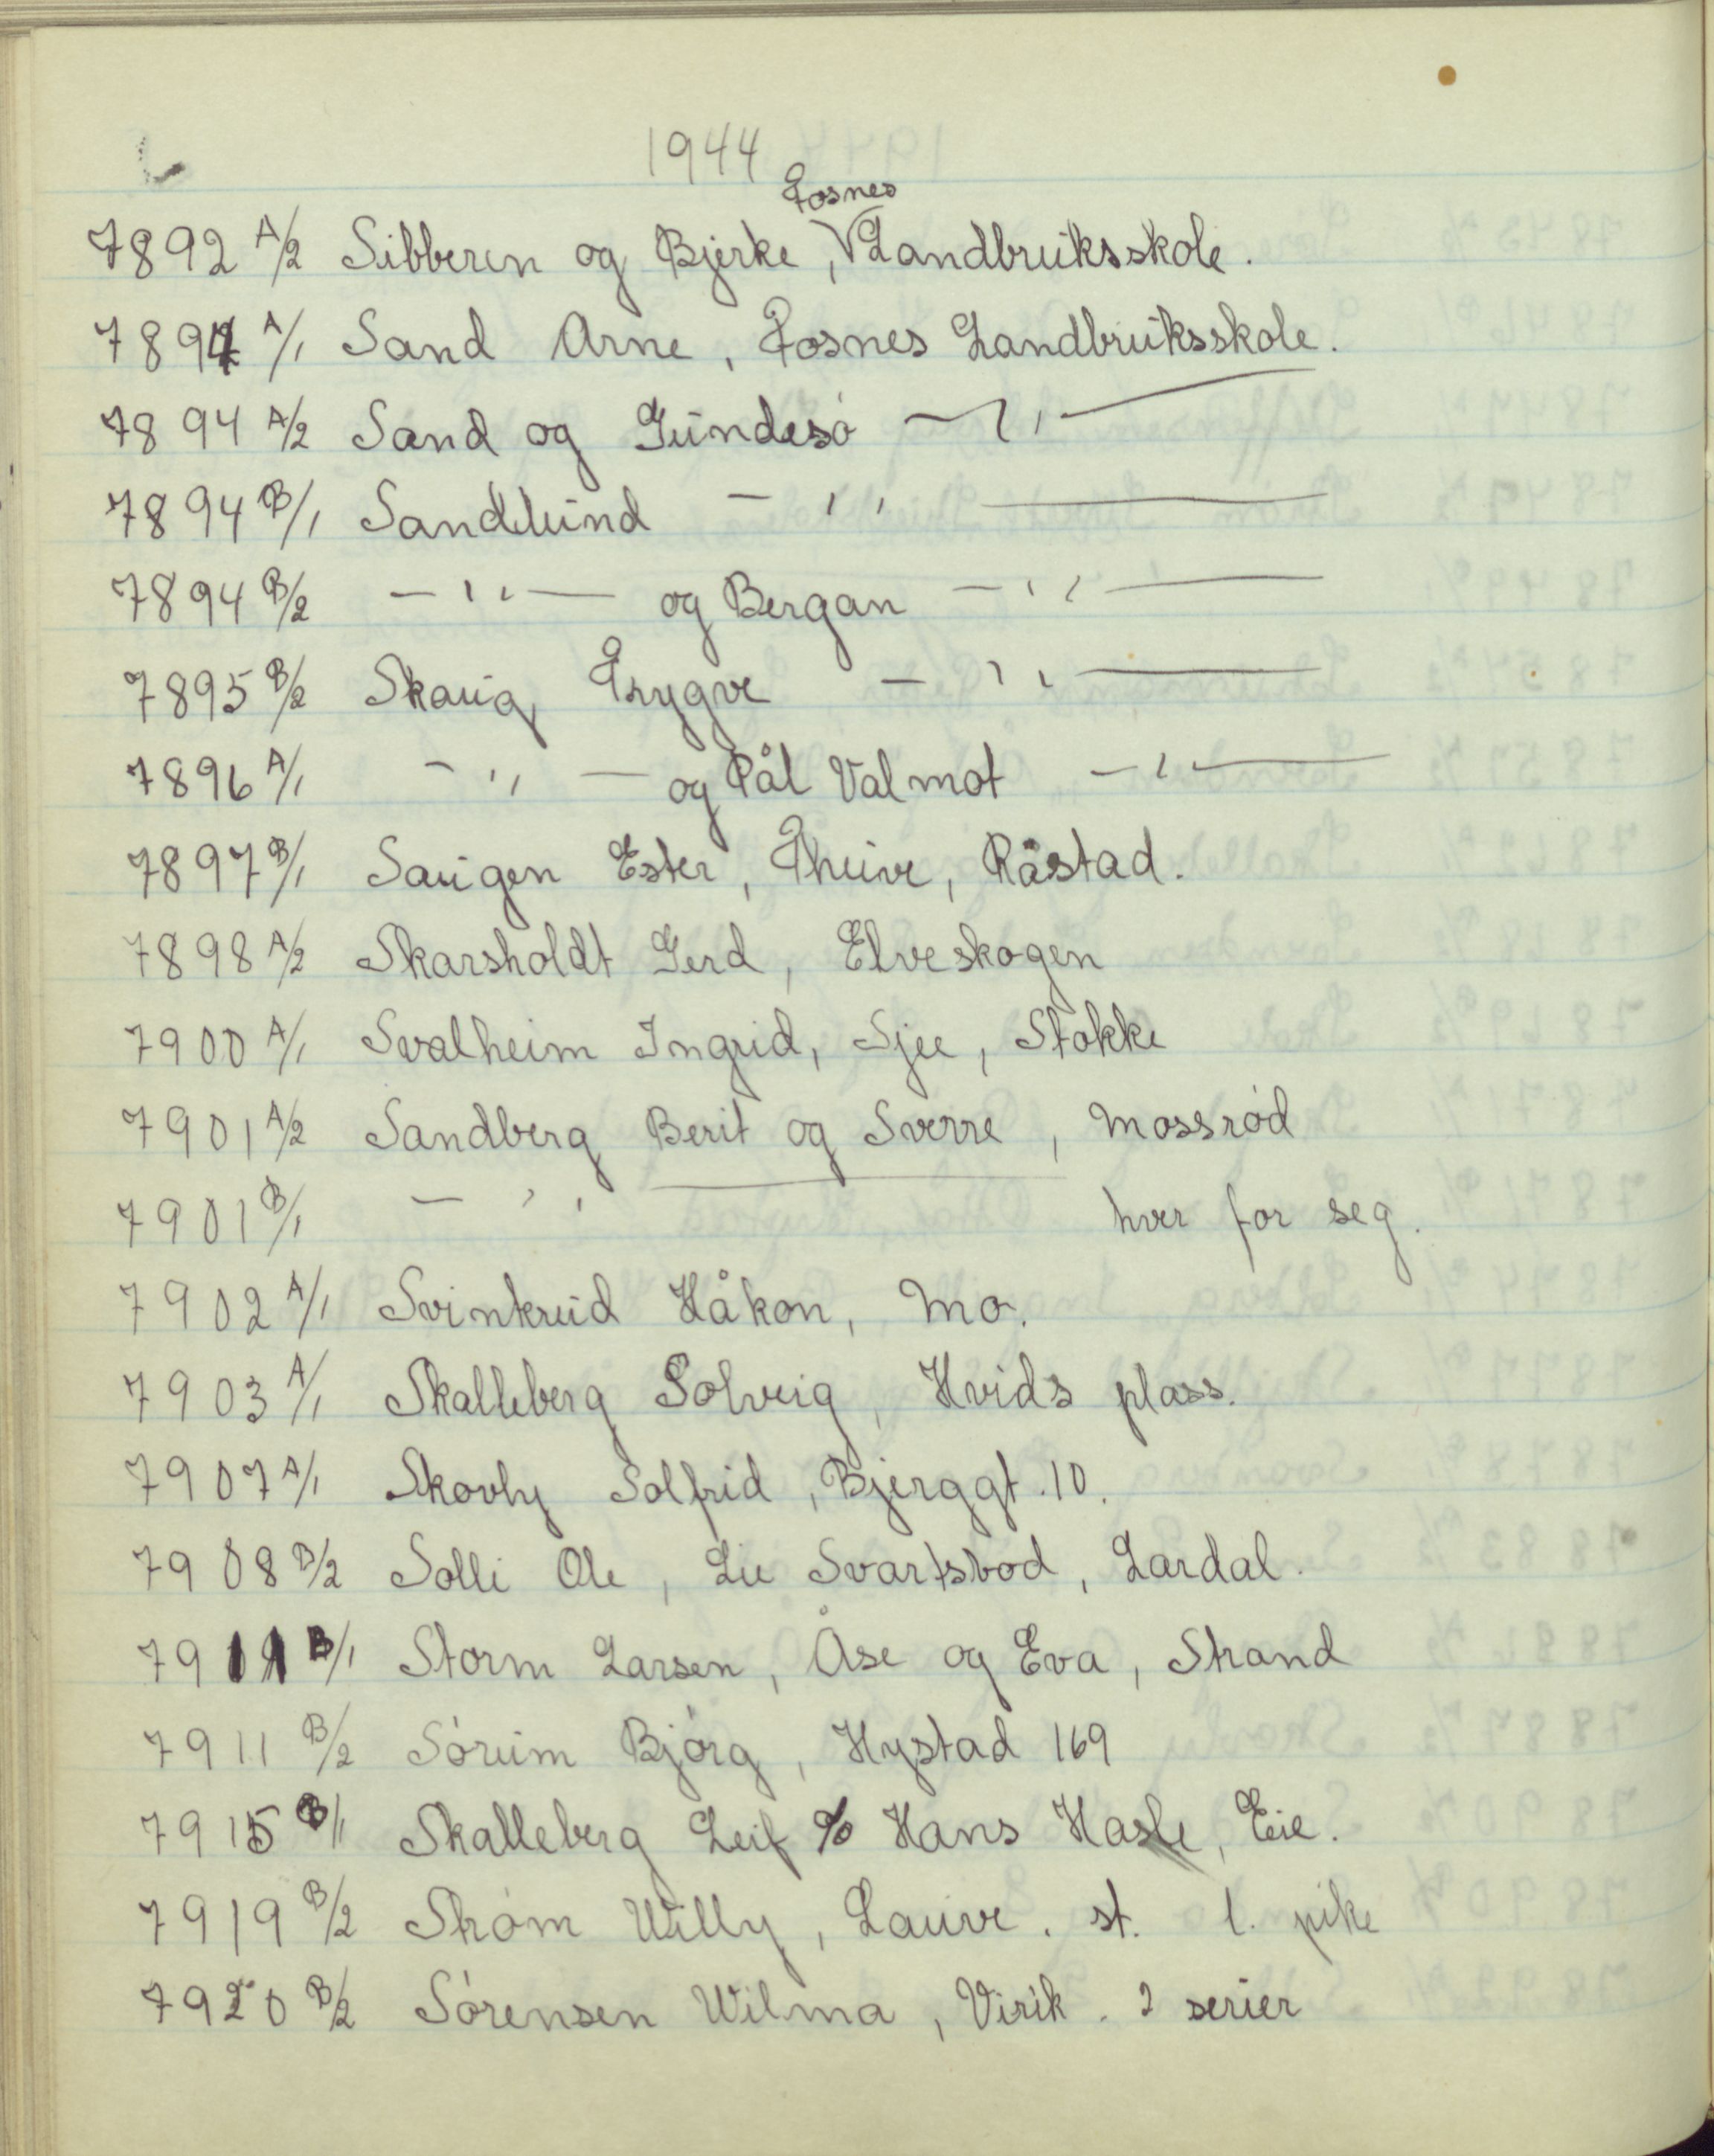 1944
Fosnes
7892 A/2 Sibberen og Bjerke, V Landbruksskole.
7894 A/1 Sand Arne, Fosnes Landbruksskole.
7894 A/2 Sand og Gundesø — " —
7894 B/1 Sandlund — " —
7894 B/2 — " — og Bergan — " —
7895 B/2 Skaug, Trygve — " —
7896 A/1 — " — og Pål Valmot — " —
7897 B/1 Saugen Ester, Thuve, Råstad.
7898 A/2 Skarsholdt Gerd, Elveskogen
7900 A/1 Svalheim Ingrid, Sjee, Stokke
7901 A/2 Sandberg Berit og Sverre, Mossrød
7901 B/1 — " — hver for seg.
7902 A/1 Svinkrud Håkon, Mo.
7903 A/1 Skalleberg Solveig, Hvids plass.
7907 A/1 Skovly Solfrid, Bjerggt. 10.
7908 B/2 Solli Ole, Lie Svartsbod, Lardal.
7911 B/1 Storm Larsen, Åse og Eva, Strand
7911 B/2 Sørum Bjørg, Hystad 169
7915 B/1 Skalleberg Leif % Hans Hasle, Eie.
7919 B/2 Strøm Willy, Lauve. st. l. pike
7920 B/2 Sørensen Wilma, Virik. 2 serier